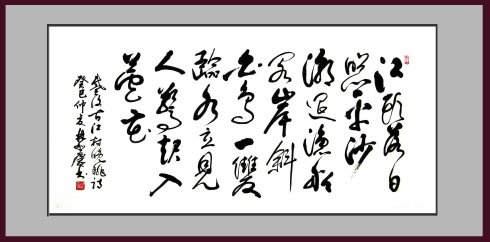 江頭落日
照平沙
潮退漁船
閣岸斜
白鳥一雙
臨水立見
人驚起入
蘆花
戴復古江村晚眺詩
癸巳仲夏書